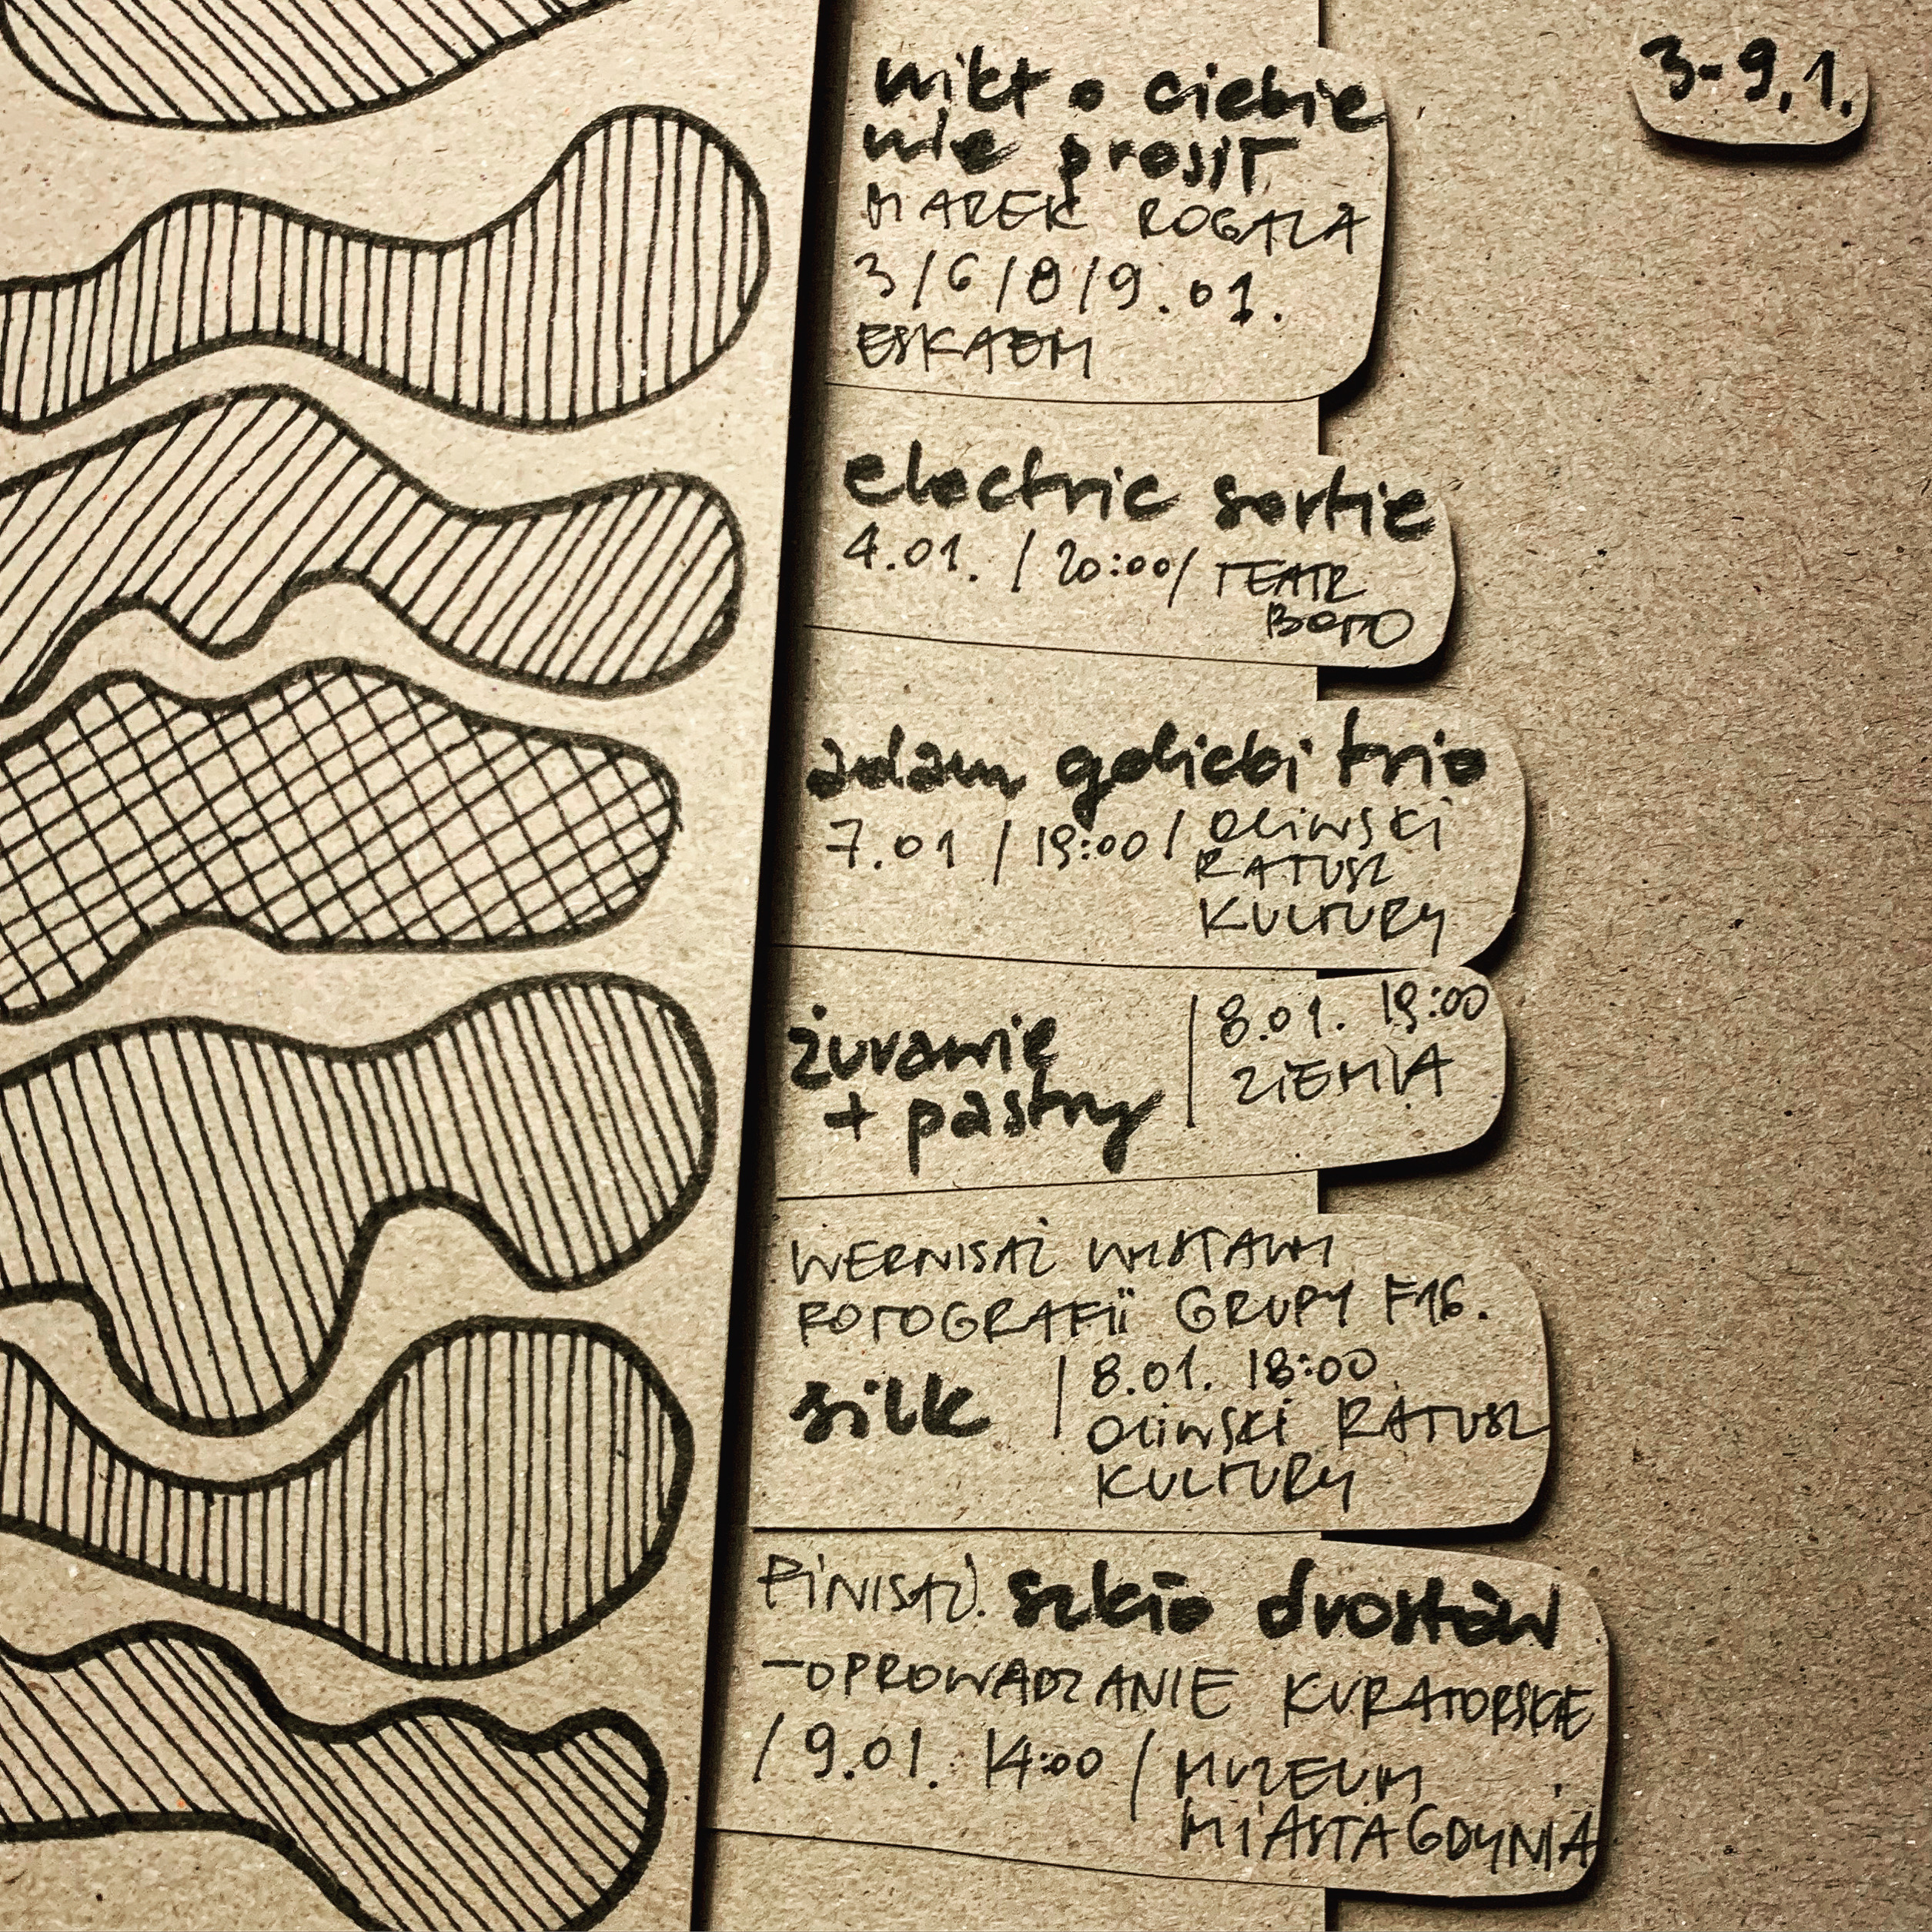 3-9.1.
nikt o ciebie
nie prosił
MAREK ROGALA
3/6/8/9.01.
ESKAEM
electric sortie
4.01. / 20:00 / TEATR
BOTO
adam golicki trio
7.01 / 19:00 / OLIWSKI
RATUSZ
KULTURY
żurawie
+ pastry
8.01. 19:00
ZIEMIA
WERNISAŻ WYSTAWY
FOTOGRAFII GRUPY F16.
silk
8.01. 18:00
OLIWSKI RATUSZ
KULTURY
FINISAŻ. szkło drostów
- OPROWADZANIE KURATORSKIE
/ 9.01. 14:00 / MUZEUM
MIASTA GDYNIA